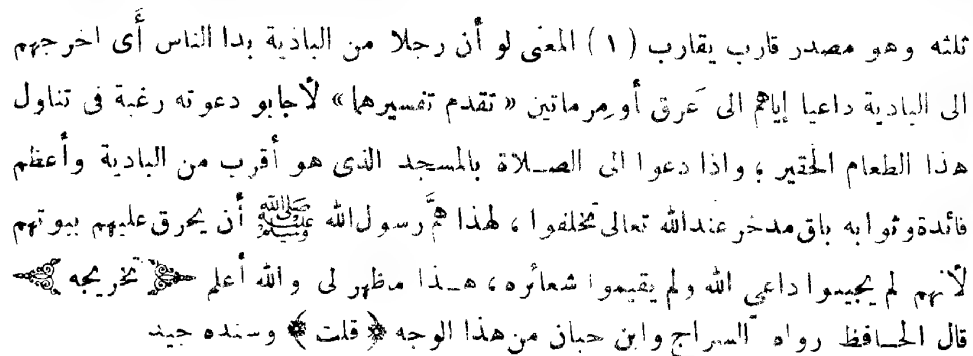 ثلثه وهو مصدر قارب يقارب (١) المعنى لو أن رجلا من البادية بدا الناس أى اخرجهم
الى البادية داعيا إياهم الى عَرق أو مِرماتين « تقدم تفسيرهما » لأجابو دعوته رغبة فى تناول
هذا الطعام الحقير ؛ واذا دعوا الى الصلاة بالمسجد الذى هو أقرب من البادية وأعظم
فائدة وثوابه باق مدخر عند الله تعالى تخلفوا ، لهذا همَّ رسول الله ﷺ أن يحرق عليهم بيوتهم
لأنهم لم يجيبوا داعي الله ولم يقيموا شعائره ، هذا مظهر لى والله أعلم ﴿ تخريجه ﴾
قال الحافظ رواه السراج وابن حبان من هذا الوجه ﴿ قلت ﴾ وسنده جيد